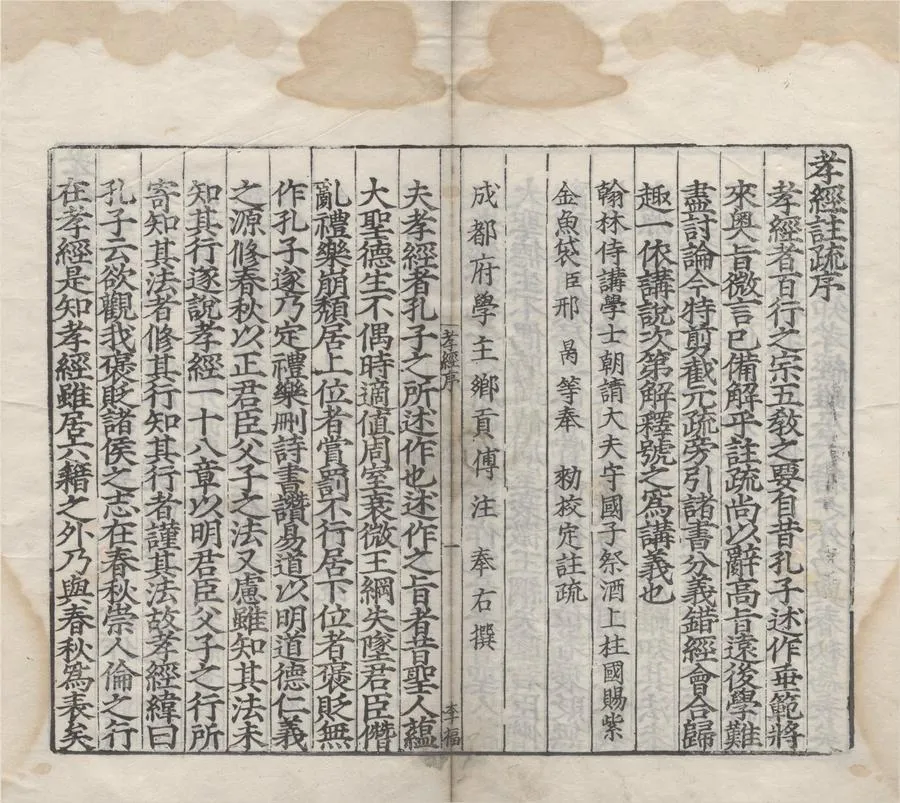 孝經註疏序
孝經者百行之宗五教之要自昔孔子述作垂範將
來奧旨微言已備解乎註疏尚以辭高旨遠後學難
盡討論今特剪截元疏旁引諸書分義錯經會合歸
趣一依講說次第解釋號之爲講義也
翰林侍講學士朝請大夫守國子祭酒上柱國賜紫
金魚袋臣邢 昺等奉 勑校定註疏
成都府學主鄉貢傅注 奉右撰
孝經序
一
李福
夫孝經者孔子之所述作也述作之旨者昔聖人蘊
大聖德生不偶時適值周室衰微王綱失墜君臣僭
亂禮樂崩頹居上位者賞罰不行居下位者褒貶無
作孔子遂乃定禮樂刪詩書讚易道以明道德仁義
之源修春秋以正君臣父子之法又慮雖知其法未
知其行遂說孝經一十八章以明君臣父子之行所
寄知其法者修其行知其行者謹其法故孝經緯曰
孔子云欲觀我褒貶諸侯之志在春秋崇人倫之行
在孝經是知孝經雖居六籍之外乃與春秋爲表矣